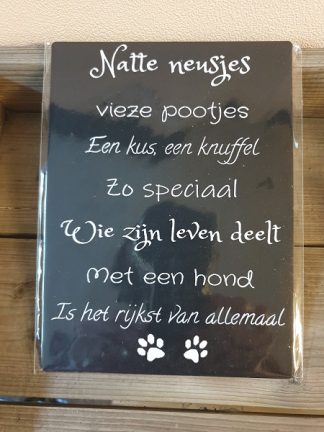 Natte neusjes
vieze pootjes
Een kus, een knuffel
Zo speciaal
Wie zijn leven deelt
Met een hond
Is het rijkst van allemaal